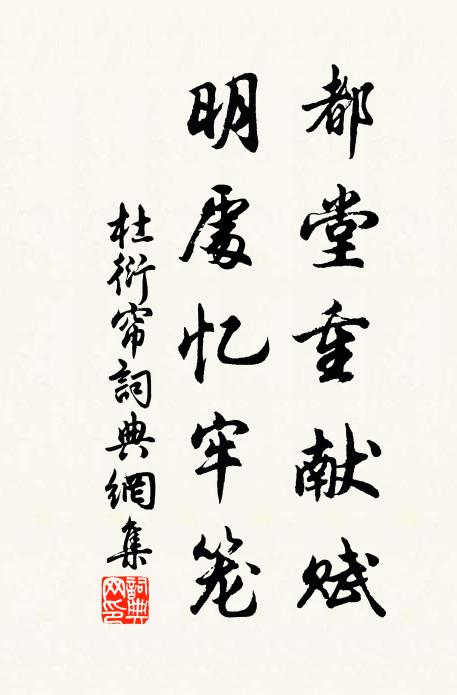 都堂重献赋
明處忆牢笼
杜衍帘詞典網集
詞典网印